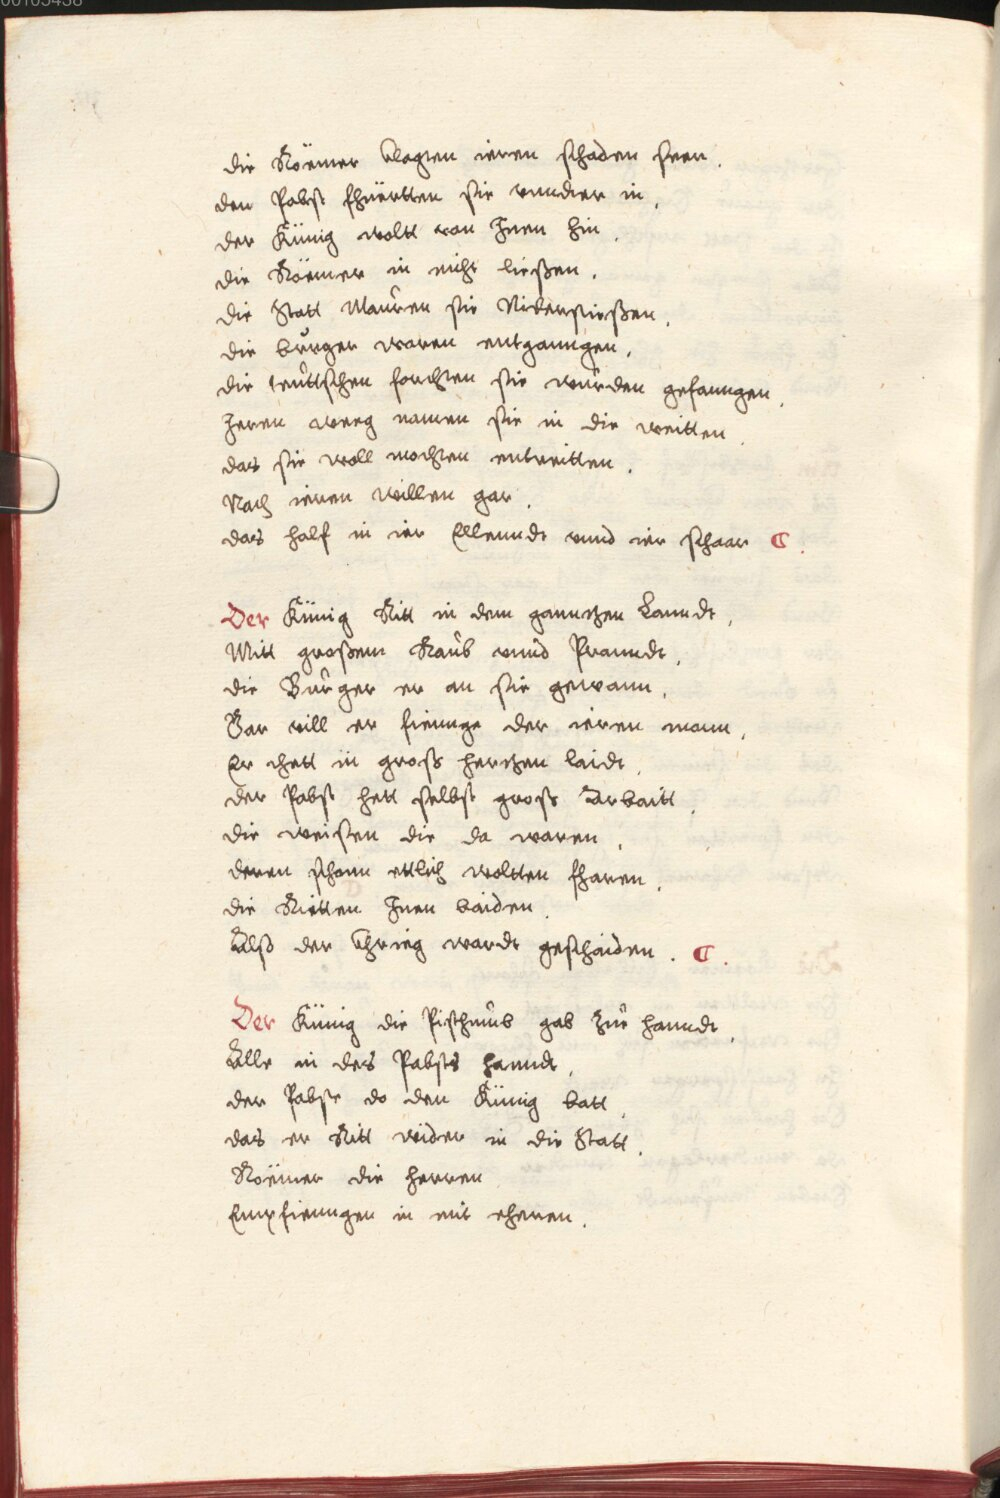 die Röemer klagten ieren schaden seer.
den Pabst fhüertten sie vnndter in,
der Künig woltt von Inen hin,
die Röemer in nicht ließen,
die Statt Mauren sie Niderstießen,
die burger waren entganngen,
die teuttschen forchten sie wurden gefanngen,
Ieren weeg namen sie in die weitten
das sie woll mochten entreitten,
Nach ieren willen gar,
das half in ier Ellenndt vnnd ier schaar

Der Künig Ritt in dem ganntzen Lanndt,
Mitt großem Raub vnnd Pranndt,
die Burger er an sie gewann,
Gar vill er fienng der ieren mann,
Er thett in gross hertzen laidt,
der Pabst hett selbst gross Arbaitt,
die weisten die da waren,
deren schonn ettlich woltten fharen,
die Rietten Inen baiden
Alß der khrieg wardt geschaiden.

Der Künig die Pisthumb gab Zur hanndt,
Alle in des Pabsts hanndt,
der Pabst do den Künig batt,
das er Ritt wider in die Statt,
Röemer die herren
Empfienngen in mit eheren,